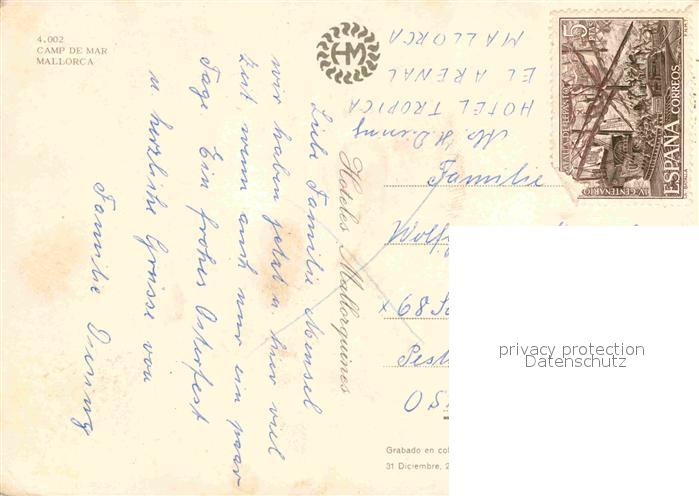 4.002
CAMP DE MAR
MALLORCA
HM
Hoteles Mallorquines
HOTEL TROPICA
EL ARENAL
MALLORCA
Liebe Familie Mensel
wir haben jetzt a. hier viel
Zeit wenn auch nur ein paar
Tage. Ein frohes Osterfest
u herzliche Grüsse von
Familie
5
PTAS
IV CENTENARIO
BATALLA DE LEPANTO
ESPAÑA
CORREOS
Familie
Wolfg
x 68
Pest
privacy protection
Datenschutz
Grabado en col
31 Diciembre, 2